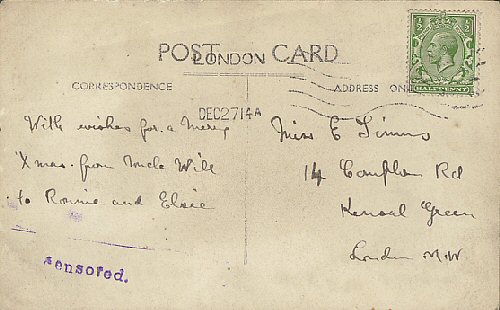 POST CARD
LONDON
CORRESPONDENCE
ADDRESS ON
DEC 27 14 A
HALFPENNY
With wishes for a Merry
Xmas from Uncle Will
to Ronnie and Elsie
Censored.
Miss E Timms
14 Compton Rd
Kensal Green
London N.W